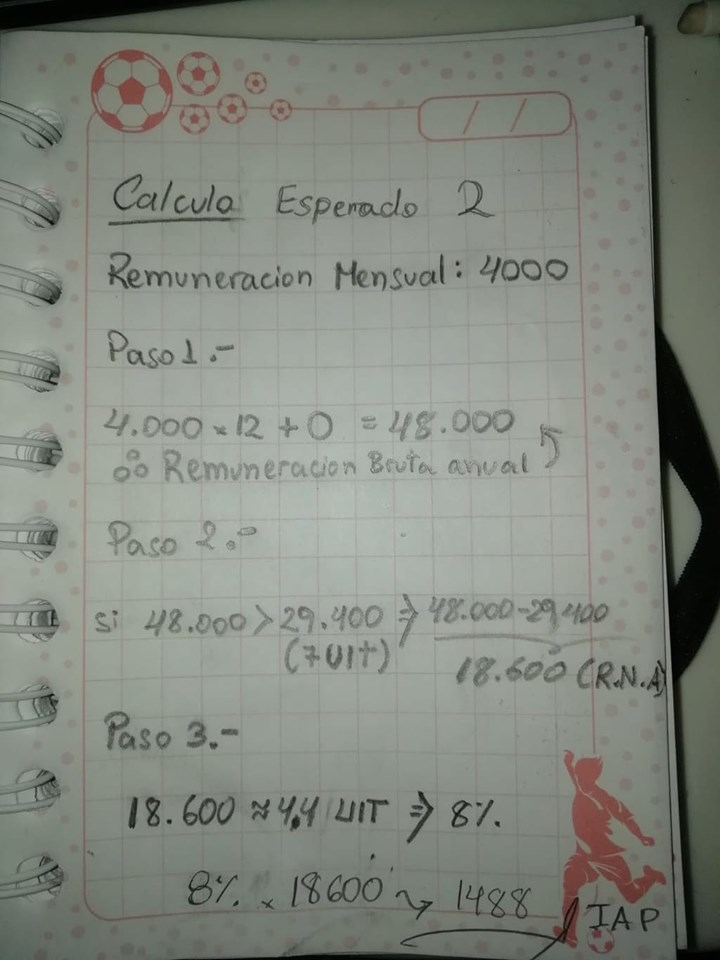 / /
Calculo Esperado 2
Remuneracion Mensual: 4000
Paso 1.-
4.000 x 12 + 0 = 48.000
∴ Remuneracion Bruta anual
Paso 2.-
si 48.000 > 29.400 ⇒ 48.000-29,400
(7 UIt) 18.600 (R.N.A)
Paso 3.-
18.600 ≈ 4,4 UIT ⇒ 8%.
8% x 18600 ↝ 1488
IAP